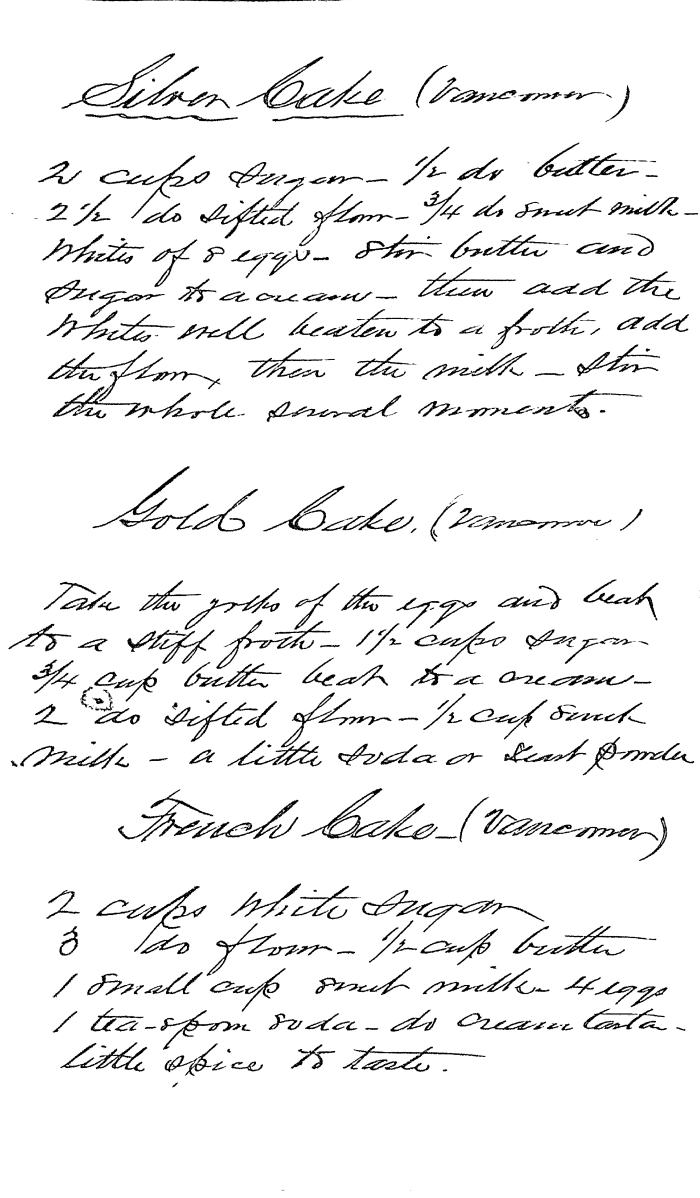 Silver Cake (Vancouver)
2 cups sugar - 1/2 do butter -
2 1/2 do sifted flour - 3/4 do sweet milk -
Whites of 8 eggs - Stir butter and
sugar to a cream - then add the
Whites well beaten to a froth, add
the flour, then the milk - stir
the whole several moments.
Gold Cake. (Vancouver)
Take the yolks of the eggs and beat
to a stiff froth - 1 1/2 cups sugar
3/4 cup butter beat to a cream -
2 do sifted flour - 1/2 cup sweet
milk - a little soda or yeast powder
French Cake - (Vancouver)
2 cups white sugar
3 do flour - 1/2 cup butter
1 small cup sweet milk - 4 eggs
1 tea-spoon soda - do cream tarta -
little spice to taste.